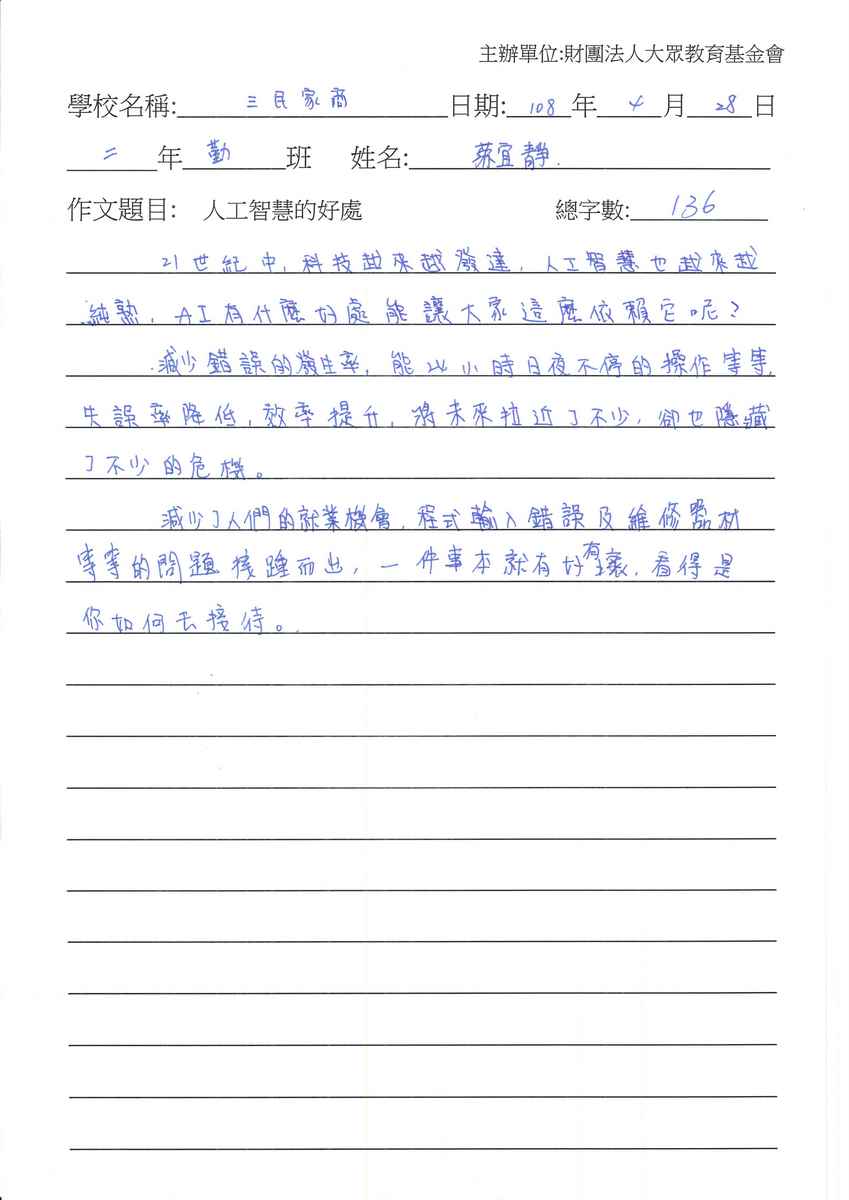 主辦單位:財團法人大眾教育基金會
學校名稱: 三民家商 日期: 108 年 4 月 28 日
二 年 勤 班 姓名: 蔡宜靜.
作文題目: 人工智慧的好處 總字數: 136
21世紀中,科技越來越發達,人工智慧也越來越
純熟,AI有什麼好處能讓大家這麼依賴它呢?
減少錯誤的發生率,能24小時日夜不停的操作等等,
失誤率降低,效率提升,將未來拉近了不少,卻也隱藏
了不少的危機。
減少了人們的就業機會,程式輸入錯誤及維修器材
等等的問題接踵而出,一件事本就有好有壞,看得是
你如何去接待。